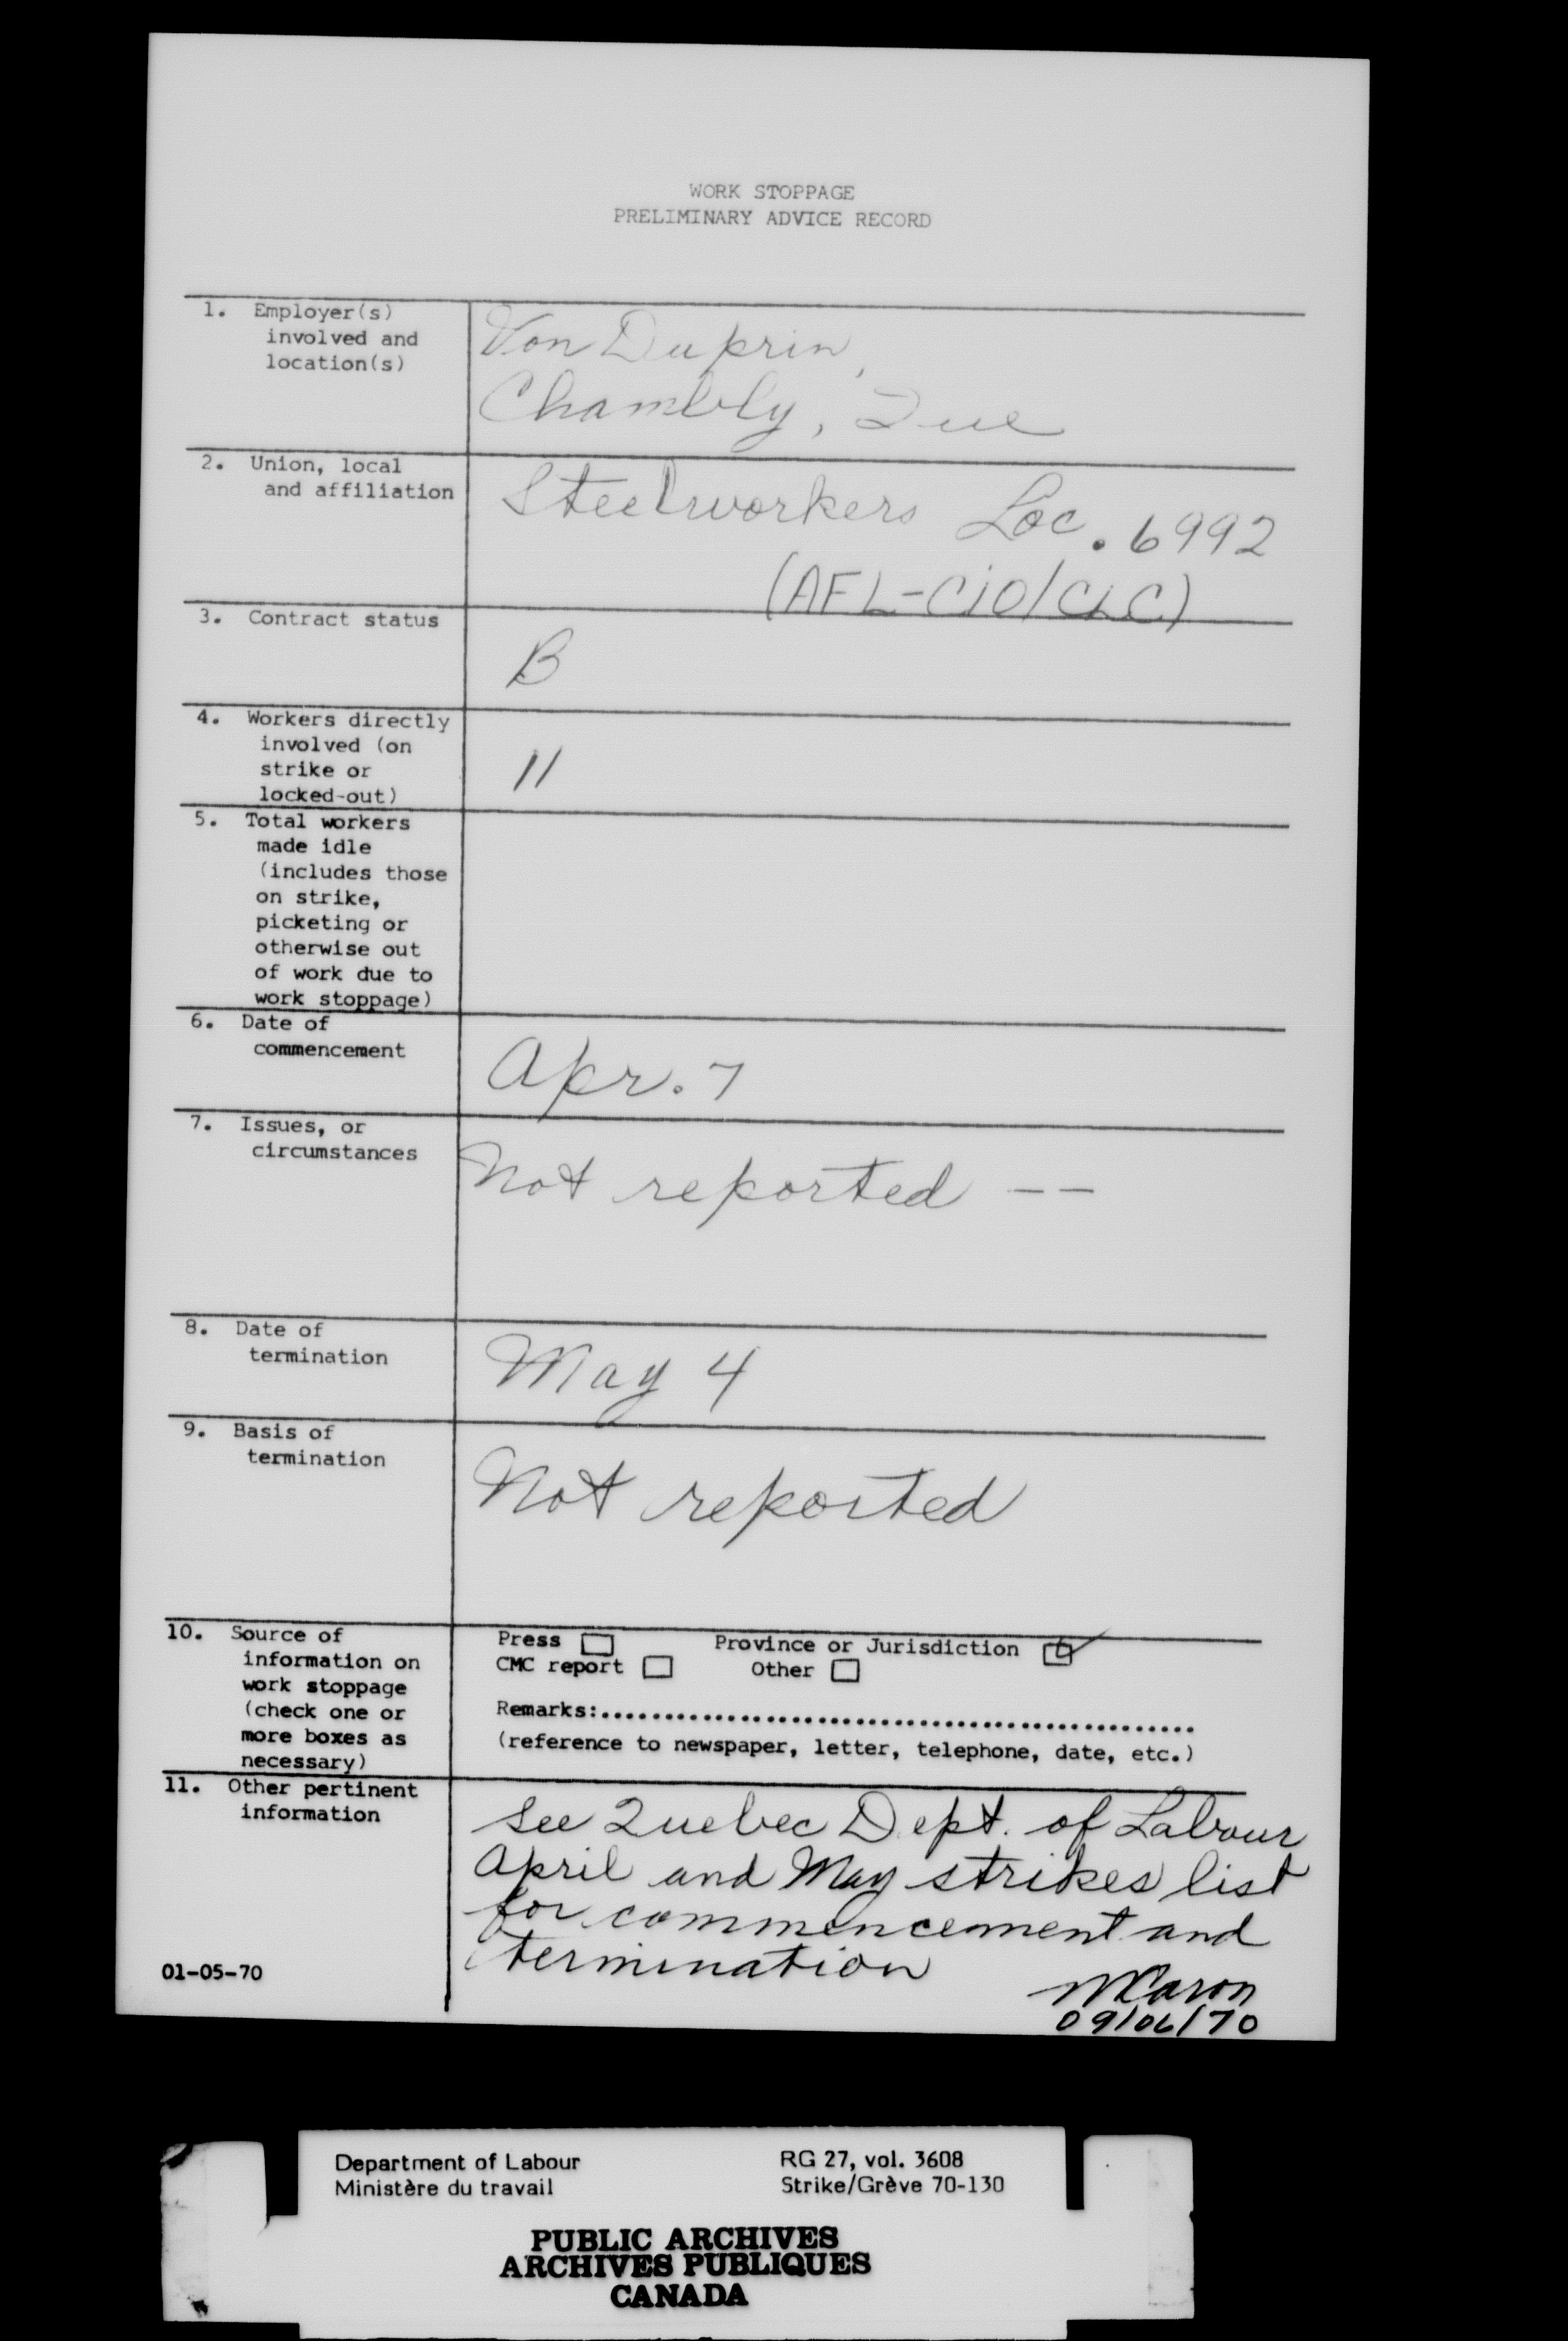 WORK STOPPAGE
PRELIMINARY ADVICE RECORD
1. Employer(s)
involved and
location(s)
Von Duprin,
Chambly, Que
2. Union, local
and affiliation
Steelworkers Loc. 6992
(AFL-CIO/CLC)
3. Contract status
B
4. Workers directly
involved (on
strike or
locked-out)
11
5. Total workers
made idle
(includes those
on strike,
picketing or
otherwise out
of work due to
work stoppage)
6. Date of
commencement
Apr. 7
7. Issues, or
circumstances
Not reported --
8. Date of
termination
May 4
9. Basis of
termination
Not reported
10. Source of
information on
work stoppage
(check one or
more boxes as
necessary)
Press Province or Jurisdiction
CMC report Other
Remarks:..............................................
(reference to newspaper, letter, telephone, date, etc.)
11. Other pertinent
information
See Quebec Dept. of Labour
April and May strikes list
for commencement and
termination
MCaron
09/06/70
01-05-70
Department of Labour
Ministère du travail
RG 27, vol. 3608
Strike/Grève 70-130
PUBLIC ARCHIVES
ARCHIVES PUBLIQUES
CANADA